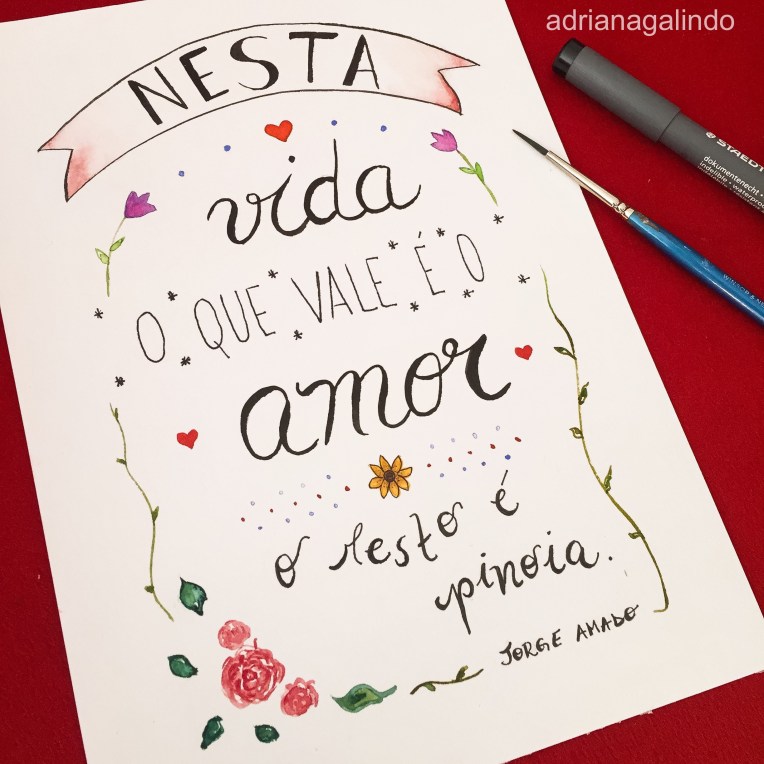 adrianagalindo
NESTA
vida
O QUE VALE É O
amor
o resto é
pinoia.
JORGE AMADO
STAEDT
dokumentenecht •
indelible • waterproof